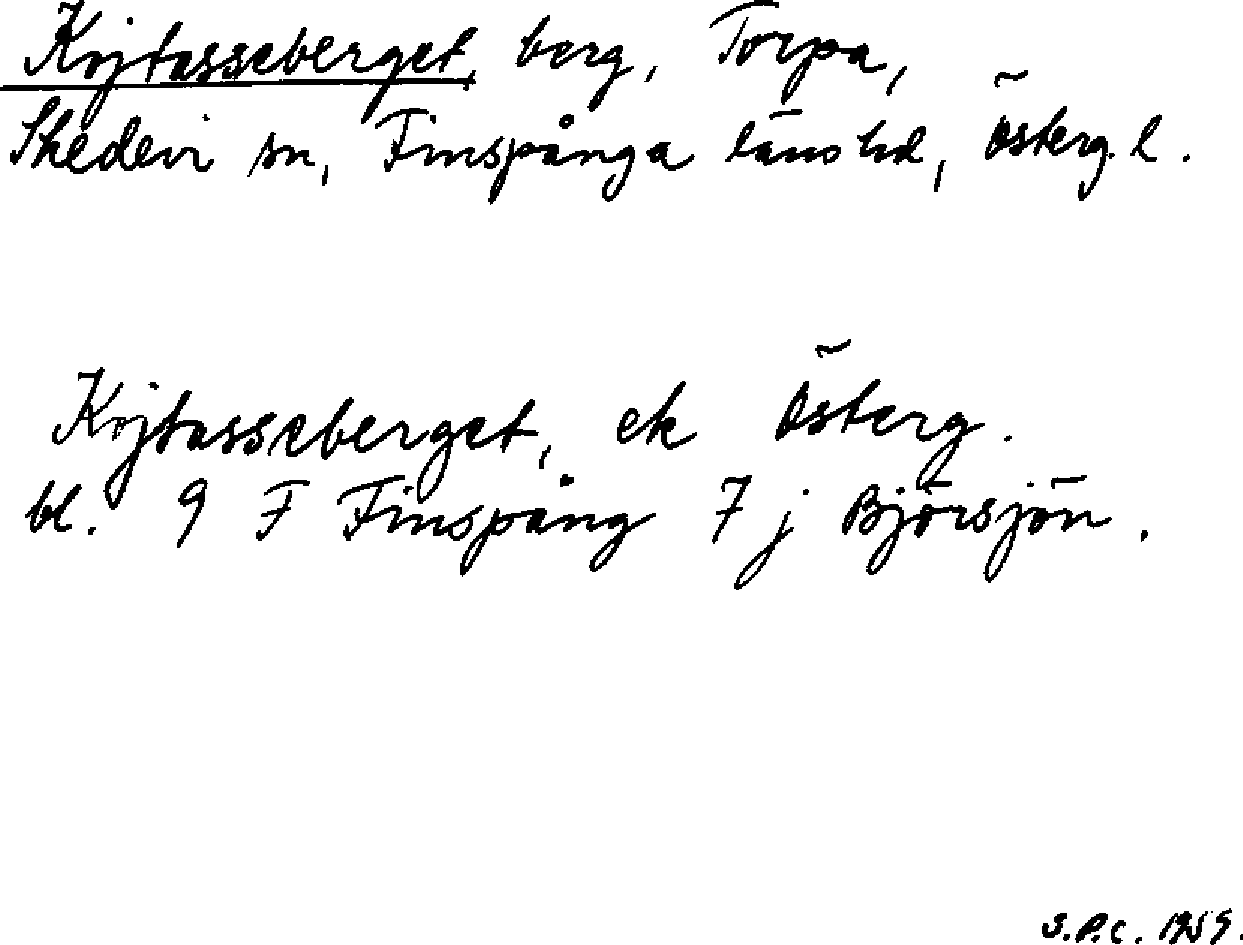 Kojtasseberget, berg, Torpa,
Skedevi sn, Finspånga läns hd, Österg. l.
Kojtasseberget, ek Österg.
bl. 9 F Finspång 7 j Björsjön.
S.P.C. 1955.